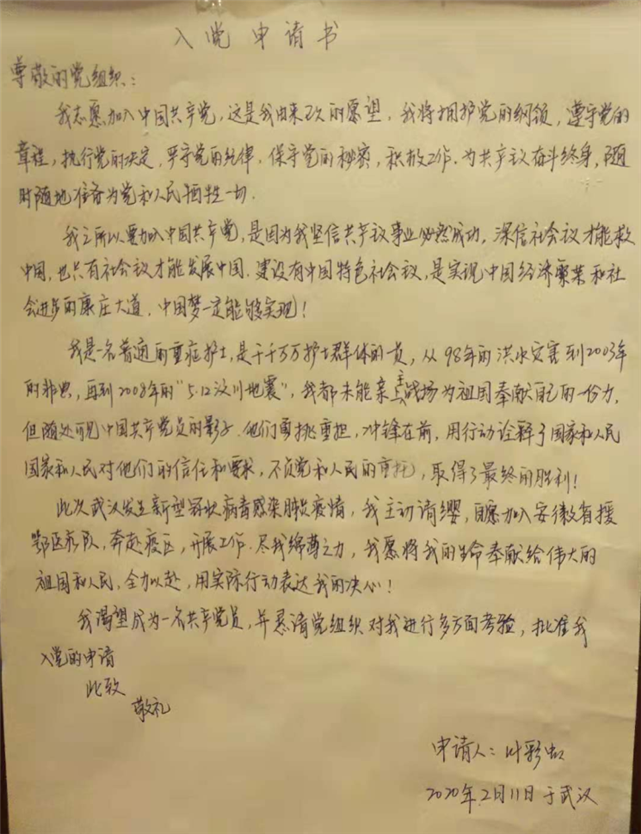 入党申请书
尊敬的党组织：
我志愿加入中国共产党，这是我由来已久的愿望，我将拥护党的纲领，遵守党的
章程，执行党的决定，严守党的纪律，保守党的秘密，积极工作，为共产主义奋斗终身，随
时随地准备为党和人民牺牲一切．
我之所以要加入中国共产党，是因为我坚信共产主义事业必然成功，深信社会主义才能救
中国，也只有社会主义才能发展中国．建设有中国特色社会主义，是实现中国经济繁荣和社
会进步的康庄大道．中国梦一定能够实现！
我是一名普通的重症护士，是千千万万护士群体的一员，从98年的洪水灾害到2003年
的非典，再到2008年的"5.12汶川地震"，我都未能亲上战场为祖国奉献自己的一份力，
但随处可见中国共产党员的影子．他们勇挑重担，冲锋在前，用行动诠释了国家和人民
国家和人民对他们的信任和要求，不负党和人民的重托，取得了最终的胜利！
此次武汉发生新型冠状病毒感染肺炎疫情，我主动请缨，自愿加入安徽省援
鄂医疗队，奔赴疫区，开展工作．尽我绵薄之力，我愿将我的生命奉献给伟大的
祖国和人民，全力以赴，用实际行动表达我的决心！
我渴望成为一名共产党员，并恳请党组织对我进行多方面考验，批准我
入党的申请
此致
敬礼
申请人：叶彩虹
2020年2月11日于武汉